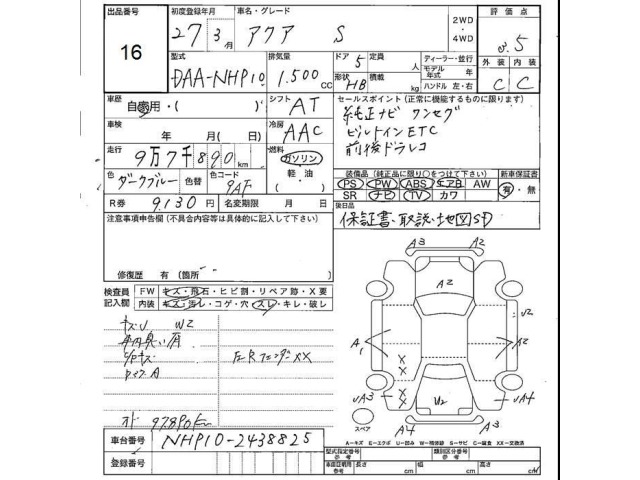 出品番号 初度登録年月 車名・グレード 2WD 評価点
16 27年 3月 アクア S 4WD 5
型式 排気量 ドア 定員 ディーラー・並行 外装 内装
DAA-NHP10 1.500cc 5 人 モデル年式 年 C C
形状 HB 積載 kg ハンドル 左・右
車歴 自家用・( ) シフト AT セールスポイント(正常に機能するものに限ります)
車検 年 月(日) 冷房 AAC 純正ナビ ワンセグ
ビルトインETC
走行 9万7千890km 燃料 ガソリン 前後ドラレコ
軽油
( )
装備品(純正品に限り○をつけて下さい) 新車保証書
色 ダークブルー 色替 色コード PS PW ABS エアB AW 有・無
SR ナビ TV カワ
R券 9130円 名変期限 月 日 後日品
注意事項申告欄(不具合内容等は具体的に記入して下さい) 保証書・取説・地図SD
修復歴 有(箇所 )
検査員 FW キズ・飛石・ヒビ割・リペア跡・X要
記入欄 内装 キズ・汚レ・コゲ・穴・スレ・キレ・破レ
A3 A2
A2
キズU W2
A1
XX
UA3 W2 UA4
A4 A3
スペア
97890km
A-キズ E-エクボ U-凹み W-補修跡 S-サビ C-腐食 XX-交換済
車台番号 NHP10-2438825
型式指定番号 類別区分番号
参考 参考
登録番号 長さ cm 幅 cm 高さ cm